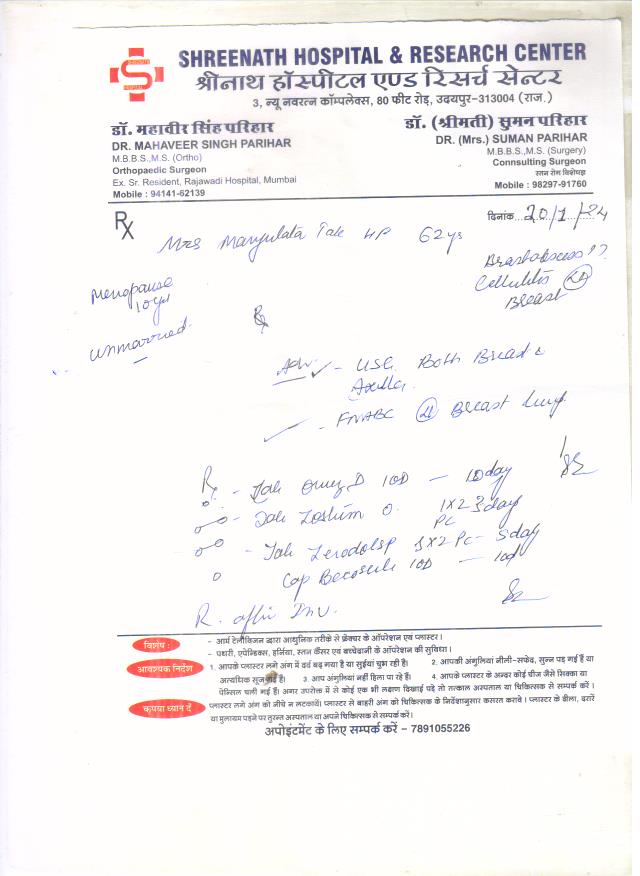 SHREENATH HOSPITAL
SHREENATH HOSPITAL & RESEARCH CENTER
श्रीनाथ हॉस्पीटल एण्ड रिसर्च सेन्टर
3, न्यू नवरत्न कॉम्पलेक्स, 80 फीट रोड़, उदयपुर-313004 (राज.)
डॉ. महावीर सिंह परिहार
DR. MAHAVEER SINGH PARIHAR
M.B.B.S.,M.S. (Ortho)
Orthopaedic Surgeon
Ex. Sr. Resident, Rajawadi Hospital, Mumbai
Mobile : 94141-62139
डॉ. (श्रीमती) सुमन परिहार
DR. (Mrs.) SUMAN PARIHAR
M.B.B.S.,M.S. (Surgery)
Connsulting Surgeon
स्तन रोग विशेषज्ञ
Mobile : 98297-91760
Rx
दिनांक...20/1/24
Mrs Manjulata 62ys
Breast abscess ??
Cellulitis
Breast
Menopause
10 ys
Unmarried
Rx
Adv - USG Both Breast &
Axilla
- FNABC Breast lump
Rx - Tab Omez D 1OD - 10day
- Tab Zostum O 1x2 3day
PC
- Tab Zerodol SP 1x2 PC - 5day
Cap Becosule 1OD - 10d
R. after Inv.
विशेष :
- आर्म टेलीविजन द्वारा आधुनिक तरीके से फ्रेक्चर के ऑपरेशन एवं प्लास्टर।
- पथरी, एपेन्डिक्स, हर्निया, स्तन कैंसर एवं बच्चेदानी के ऑपरेशन की सुविधा।
आवश्यक निर्देश
1. आपके प्लास्टर लगे अंग में दर्द बढ़ गया है या सुईयां चुभ रही है। 2. आपकी अंगुलियां नीली-सफेद, सुन्न पड़ गई हैं या
अत्यधिक सूज गई हैं। 3. आप अंगुलियां नहीं हिला पा रहे हैं। 4. आपके प्लास्टर के अन्दर कोई चीज जैसे सिक्का या
पेन्सिल चली गई हैं। अगर उपरोक्त में से कोई एक भी लक्षण दिखाई पड़े तो तत्काल अस्पताल या चिकित्सक से सम्पर्क करें।
कृपया ध्यान दें
प्लास्टर लगे अंग को नीचे न लटकायें। प्लास्टर से बाहरी अंग को चिकित्सक के निर्देशानुसार कसरत करावे। प्लास्टर के ढीला, दरारें
या मुलायम पड़ने पर तुरन्त अस्पताल या अपने चिकित्सक से सम्पर्क करें।
अपोइंटमेंट के लिए सम्पर्क करें - 7891055226